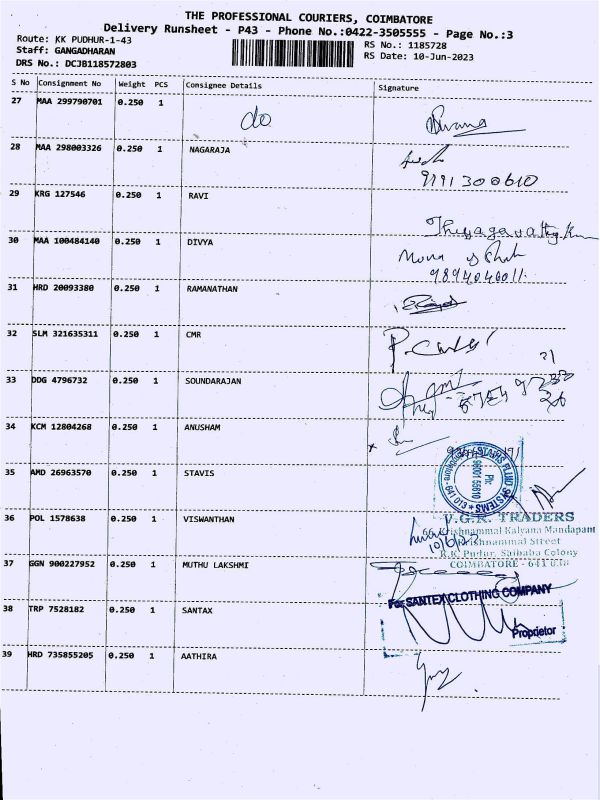 THE PROFESSIONAL COURIERS, COIMBATORE
Delivery Runsheet - P43 - Phone No.:0422-3505555 - Page No.:3
Route: KK PUDHUR-1-43
Staff: GANGADHARAN
DRS No.: DCJB118572803
RS No.: 1185728
RS Date: 10-Jun-2023
S No Consignment No Weight PCS Consignee Details Signature
27 MAA 299790701 0.250 1 do
28 MAA 298003326 0.250 1 NAGARAJA
9191300610
29 KRG 127546 0.250 1 RAVI
30 MAA 100484140 0.250 1 DIVYA
9894046011
31 HRD 20093380 0.250 1 RAMANATHAN
32 SLM 321635311 0.250 1 CMR
33 DDG 4796732 0.250 1 SOUNDARAJAN
34 KCM 12804268 0.250 1 ANUSHAM
35 AMD 26963570 0.250 1 STAVIS
36 POL 1578638 0.250 1 VISWANTHAN
V.G.R. TRADERS
66, Krishnammal Kalyana Mandapam
Krishnammal Street
R.K. Pudur, Saibaba Colony
COIMBATORE - 641 038
37 GGN 900227952 0.250 1 MUTHU LAKSHMI
38 TRP 7528182 0.250 1 SANTAX
For SANTEX CLOTHING COMPANY
Proprietor
39 HRD 735855205 0.250 1 AATHIRA